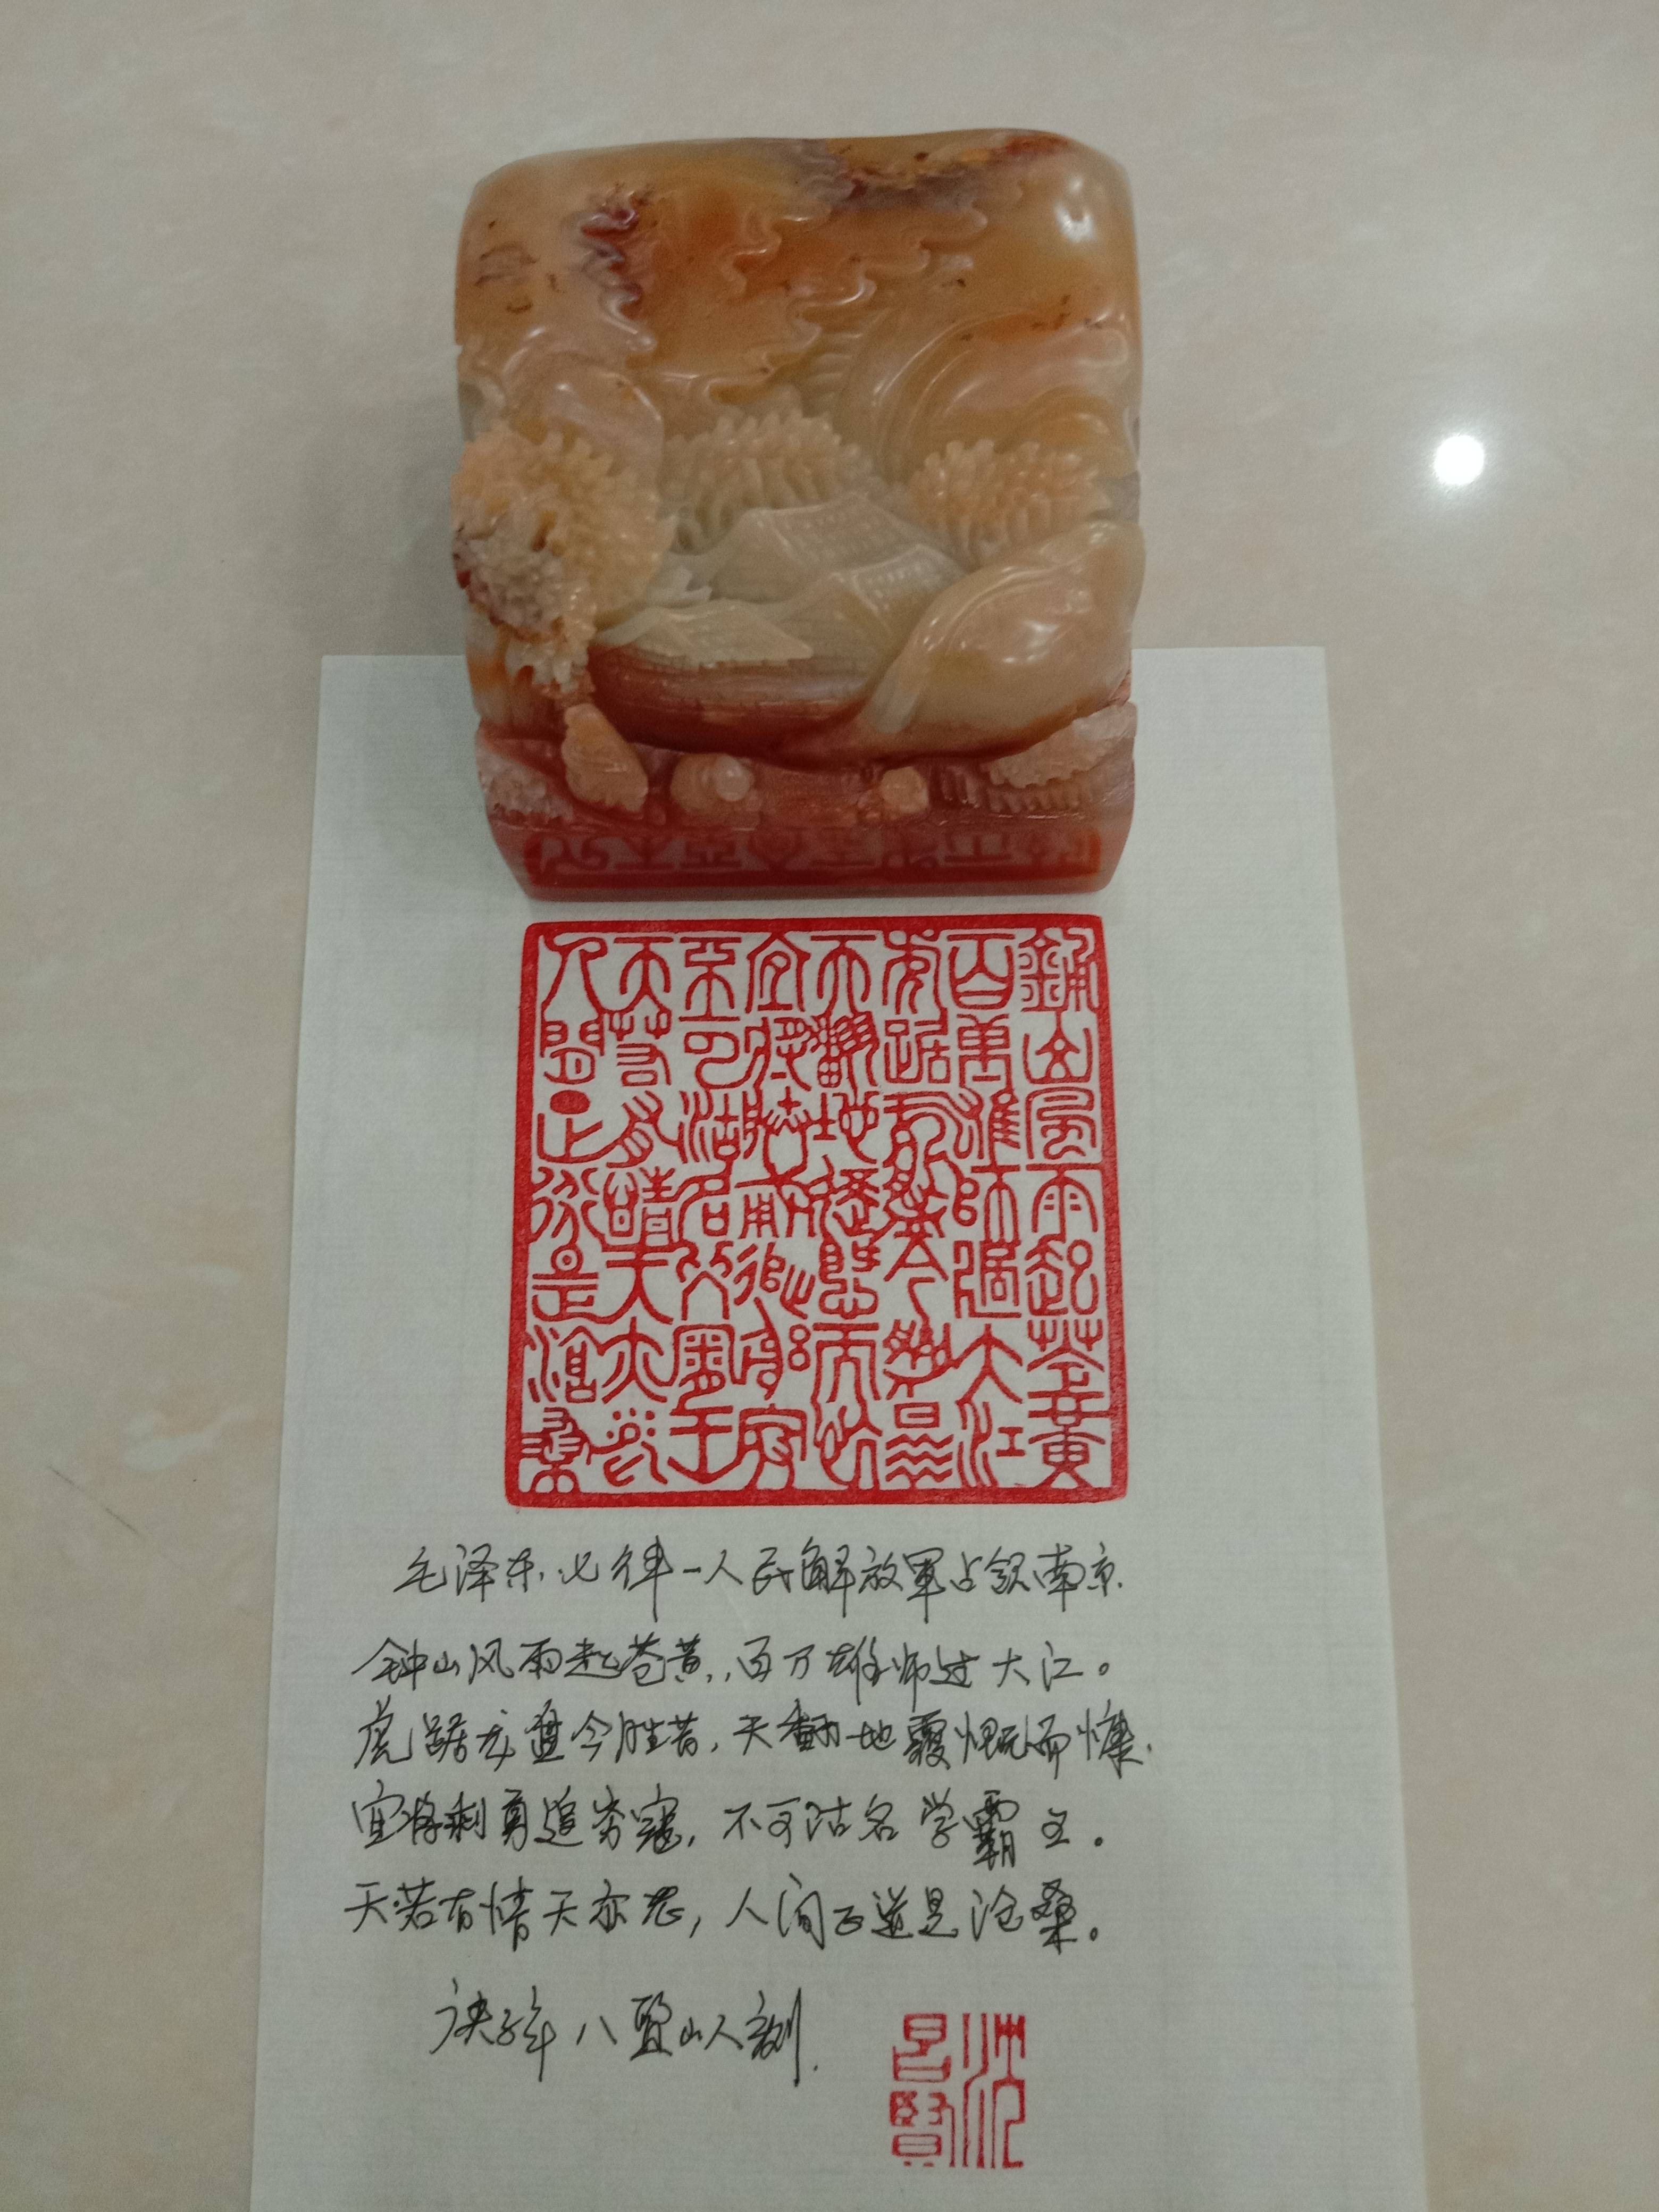 鍾山風雨起蒼黃
百萬雄師過大江
虎踞龍盤今勝昔
天翻地覆慨而慷
宜將剩勇追窮寇
不可沽名學霸王
天若有情天亦老
人間正道是滄桑
毛泽东七律一人民解放軍占领南京.
钟山风雨起苍黄,百万雄师过大江。
虎踞龙盘今胜昔,天翻地覆慨而慷.
宜将剩勇追穷寇,不可沽名学霸王。
天若有情天亦老,人间正道是沧桑。
庚子年 八 山人刻.
沈昌賢